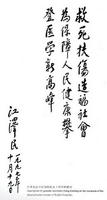 救死扶傷造福社會
為保障人民健康攀
登医学新高峰
江澤民
一九九七年
十月十九日